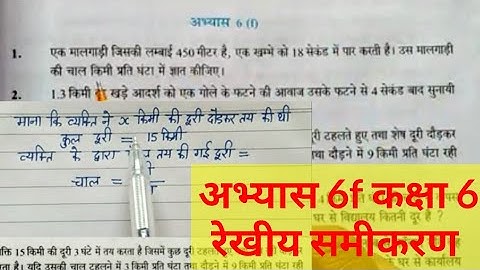 अभ्यास 6 (f)
1. एक मालगाड़ी जिसकी लम्बाई 450 मीटर है, एक खम्भे को 18 सेकंड में पार करती है। उस मालगाड़ी
की चाल किमी प्रति घंटा में ज्ञात कीजिए।
2. 1.3 किमी दूर खड़े आदर्श को एक गोले के फटने की आवाज उसके फटने से 4 सेकंड बाद सुनायी
माना कि व्यक्ति ने x किमी की दूरी दौड़कर तय की थी
कुल दूरी = 15 किमी
व्यक्ति के द्वारा तय की गई दूरी =
चाल =
दूरी टहलते हुए तथा शेष दूरी दौड़कर
तथा दौड़ने में 9 किमी प्रति घंटा रही
घर से विद्यालय कितनी दूर है ?
अभ्यास 6f कक्षा 6
रेखीय समीकरण
क्ति 15 किमी की दूरी 3 घंटे में तय करता है जिसमें कुछ दूरी टहलते
है। यदि उसकी चाल टहलने में 3 किमी प्रति घंटा तथा दौड़ने में 9 किमी प्रति घंटा रही